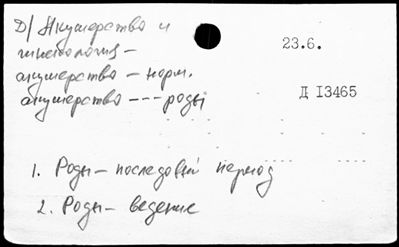 Д/ Акушерство и
гинекология —
акушерство — норм.
акушерство --- роды
23.6.
Д I3465
1. Роды — последовый период
2. Роды — ведение